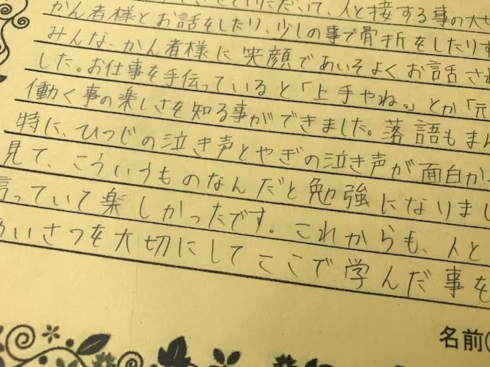 せていただいて、人と接する事の大切
かん者様とお話をしたり、少しの事で骨折をしたりす
みんな、かん者様に笑顔であいそよくお話さ
した。お仕事を手伝っていると「上手やね。」とか「元
働く事の楽しさを知る事ができました。落語もまん
特に、ひつじの泣き声とやぎの泣き声が面白か
見て、こういうものなんだと勉強になりまし
言っていて楽しかったです。これからも、人と
いさつを大切にしてここで学んだ事を
名前